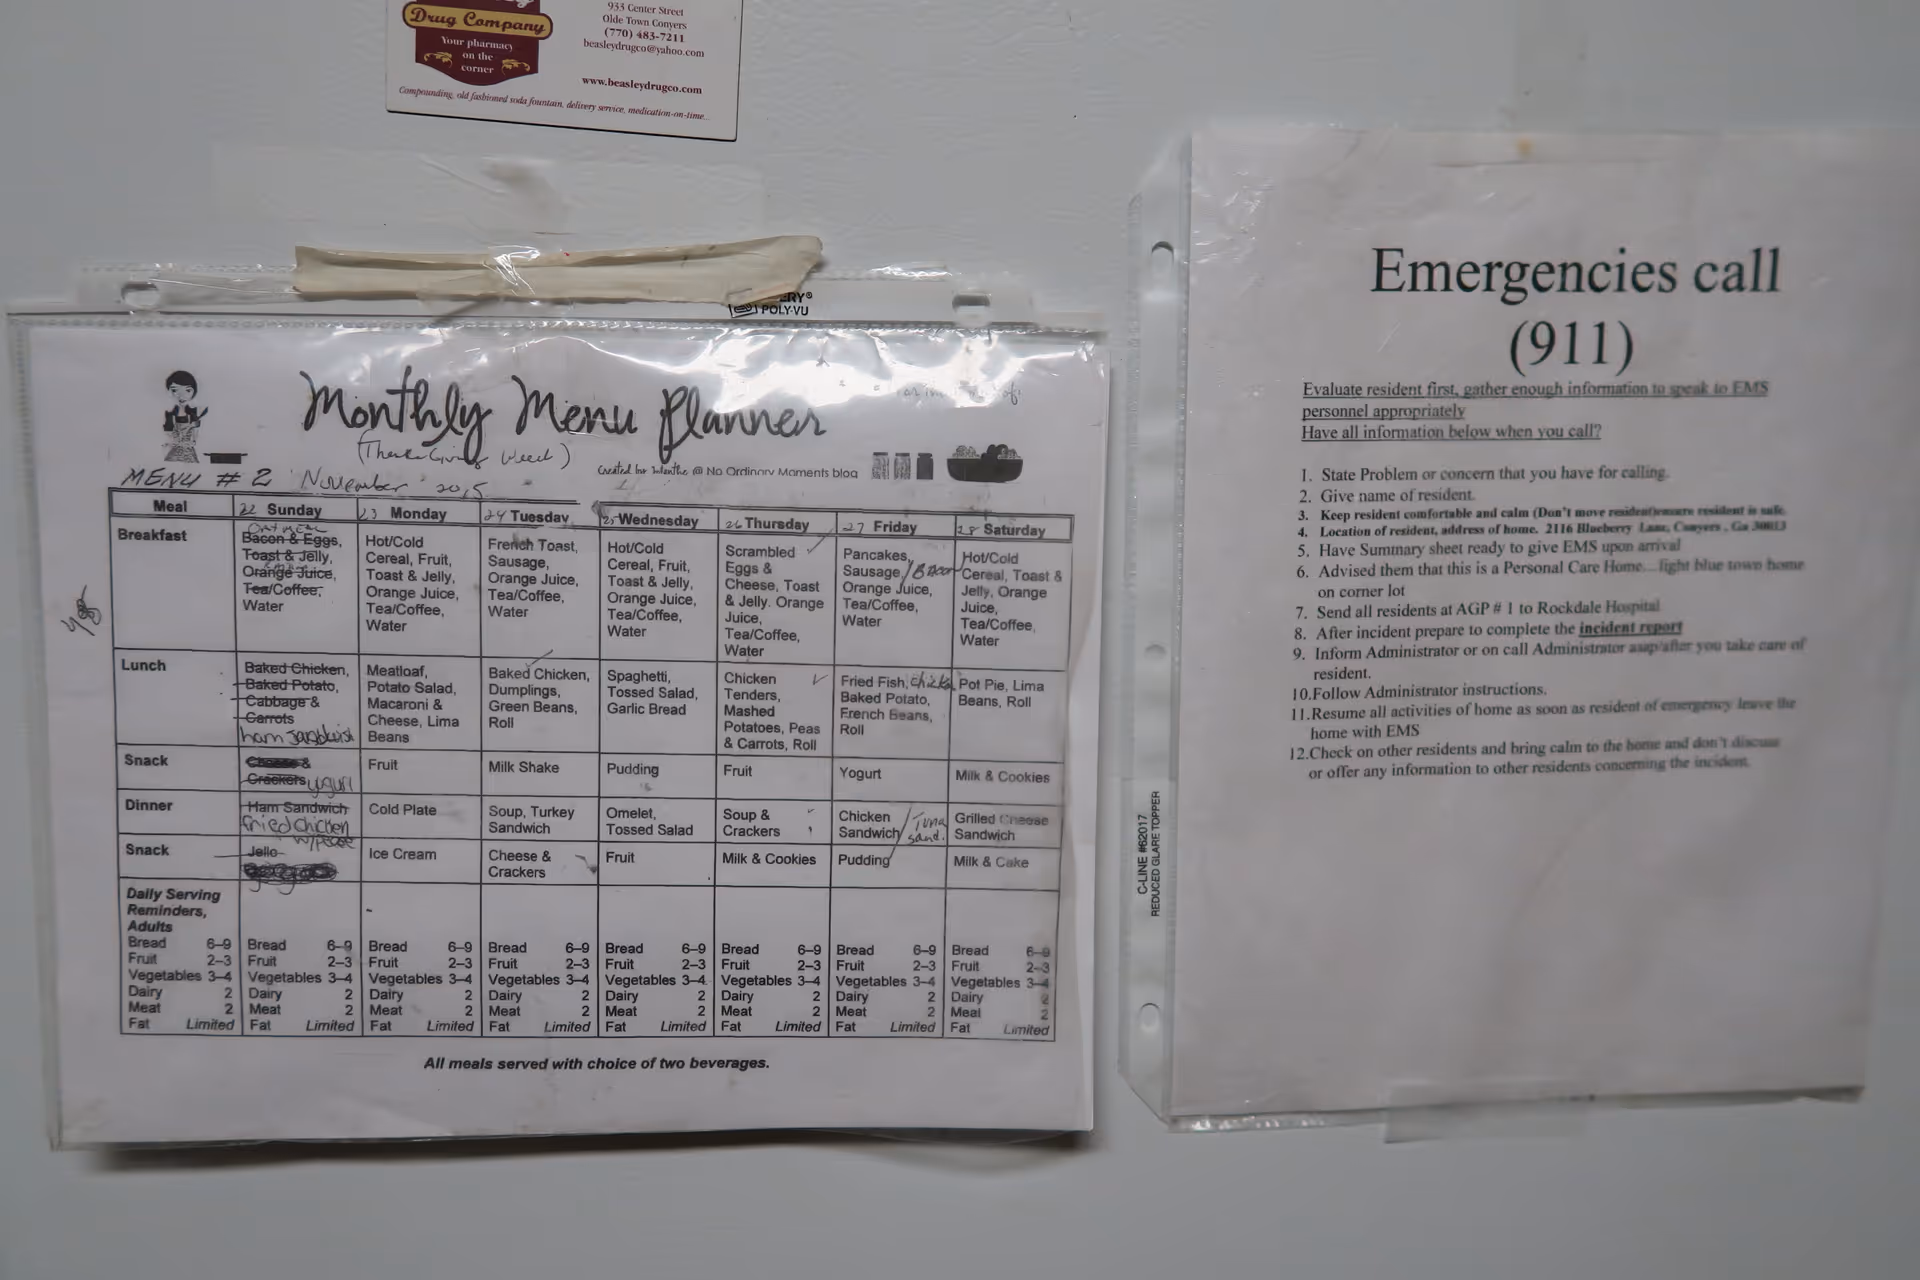 Drug Company
Your pharmacy
on the
corner
933 Center Street
Olde Town Conyers
(770) 483-7211
beasleydrugco@yahoo.com
www.beasleydrugco.com
Compounding, old fashioned soda fountain, delivery service, medication-on-time...
POLY-VU
Monthly Menu Planner
(Thanksgiving Week)
Created by @ No Ordinary Moments blog
MENU # 2 November 2015
Meal
22 Sunday
23 Monday
24 Tuesday
25 Wednesday
26 Thursday
27 Friday
28 Saturday
Breakfast
oatmeal
Bacon & Eggs,
Toast & Jelly,
Orange Juice,
Tea/Coffee,
Water
Hot/Cold
Cereal, Fruit,
Toast & Jelly,
Orange Juice,
Tea/Coffee,
Water
French Toast,
Sausage,
Orange Juice,
Tea/Coffee,
Water
Hot/Cold
Cereal, Fruit,
Toast & Jelly,
Orange Juice,
Tea/Coffee,
Water
Scrambled
Eggs &
Cheese, Toast
& Jelly. Orange
Juice,
Tea/Coffee,
Water
Pancakes,
Sausage, /Bacon
Orange Juice,
Tea/Coffee,
Water
Hot/Cold
Cereal, Toast &
Jelly, Orange
Juice,
Tea/Coffee,
Water
Lunch
Baked Chicken,
Baked Potato,
Cabbage &
Carrots
ham sandwich
Meatloaf,
Potato Salad,
Macaroni &
Cheese, Lima
Beans
Baked Chicken,
Dumplings,
Green Beans,
Roll
Spaghetti,
Tossed Salad,
Garlic Bread
Chicken
Tenders,
Mashed
Potatoes, Peas
& Carrots, Roll
Fried Fish,
Baked Potato,
French Beans,
Roll
Pot Pie, Lima
Beans, Roll
Snack
Cheese &
Crackers yogurt
Fruit
Milk Shake
Pudding
Fruit
Yogurt
Milk & Cookies
Dinner
Ham Sandwich
fried chicken
Cold Plate
Soup, Turkey
Sandwich
Omelet,
Tossed Salad
Soup &
Crackers
Chicken
Sandwich / Tuna
sand.
Grilled Cheese
Sandwich
Snack
Jello
Ice Cream
Cheese &
Crackers
Fruit
Milk & Cookies
Pudding
Milk & Cake
Daily Serving
Reminders,
Adults
Bread 6–9 Bread 6–9 Bread 6–9 Bread 6–9 Bread 6–9 Bread 6–9 Bread 6–9 Bread 6–9
Fruit 2–3 Fruit 2–3 Fruit 2–3 Fruit 2–3 Fruit 2–3 Fruit 2–3 Fruit 2–3 Fruit 2–3
Vegetables 3–4 Vegetables 3–4 Vegetables 3–4 Vegetables 3–4 Vegetables 3–4 Vegetables 3–4 Vegetables 3–4 Vegetables 3–4
Dairy 2 Dairy 2 Dairy 2 Dairy 2 Dairy 2 Dairy 2 Dairy 2 Dairy 2
Meat 2 Meat 2 Meat 2 Meat 2 Meat 2 Meat 2 Meat 2 Meat 2
Fat Limited Fat Limited Fat Limited Fat Limited Fat Limited Fat Limited Fat Limited Fat Limited
All meals served with choice of two beverages.
C-LINE #62017
REDUCED GLARE TOPPER
Emergencies call
(911)
Evaluate resident first, gather enough information to speak to EMS
personnel appropriately
Have all information below when you call?
1. State Problem or concern that you have for calling.
2. Give name of resident.
3. Keep resident comfortable and calm (Don't move resident)ensure resident is safe.
4. Location of resident, address of home. 2116 Blueberry Lane, Conyers, Ga 30013
5. Have Summary sheet ready to give EMS upon arrival
6. Advised them that this is a Personal Care Home... light blue town home
on corner lot
7. Send all residents at AGP # 1 to Rockdale Hospital
8. After incident prepare to complete the incident report
9. Inform Administrator or on call Administrator asap/after you take care of
resident.
10.Follow Administrator instructions.
11.Resume all activities of home as soon as resident of emergency leave the
home with EMS
12.Check on other residents and bring calm to the home and don't discuss
or offer any information to other residents concerning the incident.